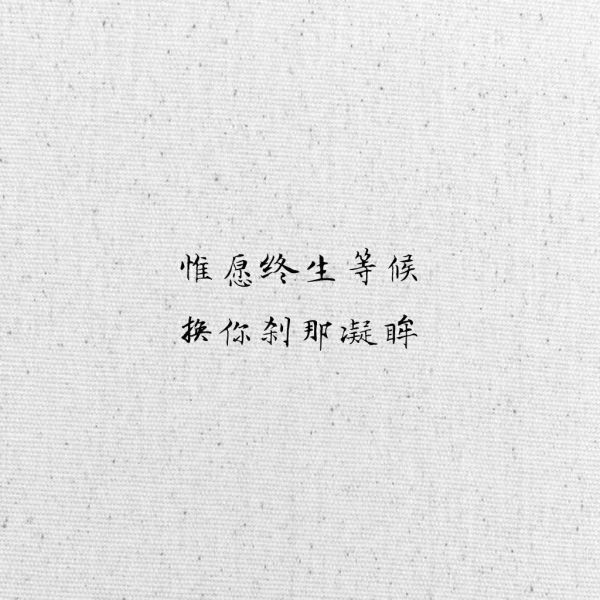 惟愿终生等候
换你刹那凝眸